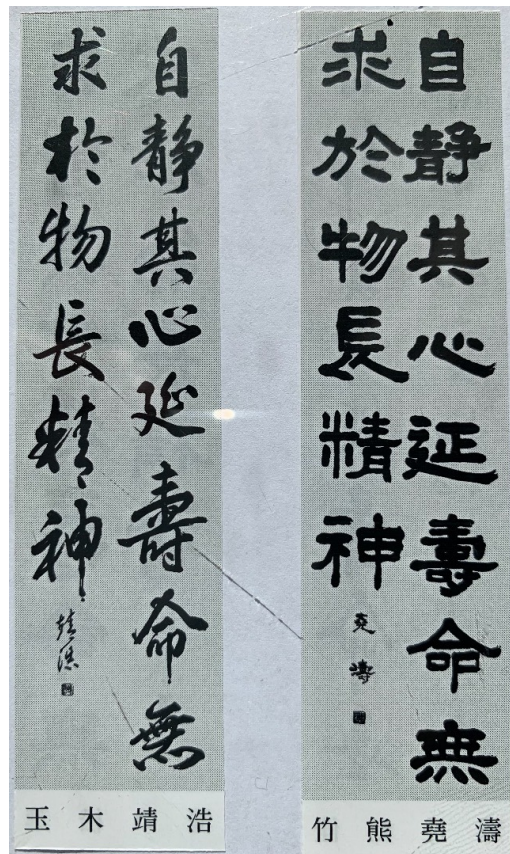 自静其心延壽命無
求於物長精神
堯濤
竹熊堯濤
自静其心延壽命無
求於物長精神
靖浩
玉木靖浩